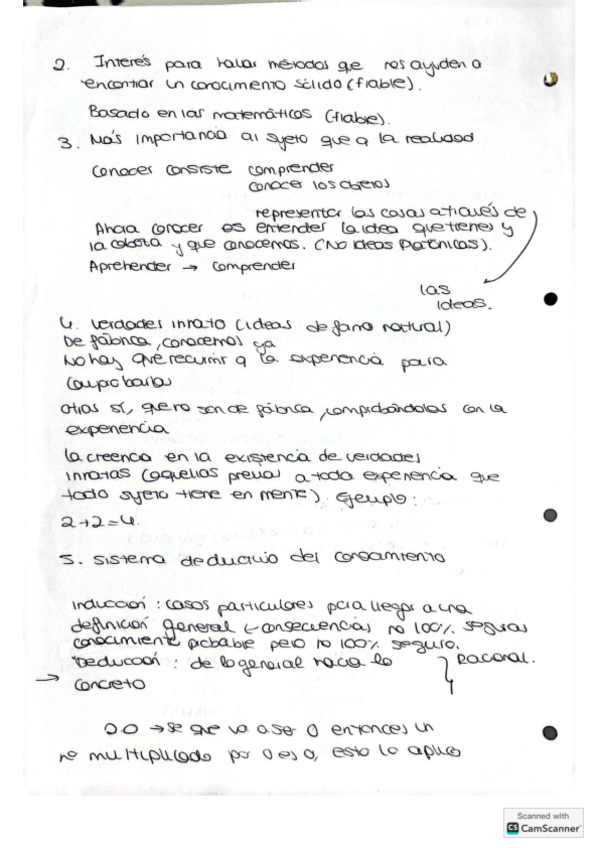 2. Interés para hallar métodos que nos ayuden a
encontrar un conocimento sólido (fiable).
Basado en las matemáticas (fiable).
3. Más importancia al sujeto que a la realidad
Conocer consiste comprender
conocer los objetos
representar las cosas a través de
Ahora conocer es entender la idea que tienes y
la cabeza y que conocemos. (No ideas platónicas).
Aprehender → comprender
las
ideas.
4. verdades innato (ideas de forma natural)
De fábrica, conocemos ya
No hay que recurrir a la experiencia para
comprobarlas
otras sí, que no son de fábrica, comprobándolas con la
experiencia
la creencia en la existencia de verdades
innatas (aquellas previas a toda experiencia que
todo sujeto tiene en mente). Ejemplo:
2+2=4.
5. Sistema deductivo del conocimiento
Inducción: casos particulares para llegar a una
definición general (-consecuencias no 100% seguras
conocimiente probable pero no 100% seguro.
Deducción: de lo general hacia lo
Racional.
→ concreto
0.0 → se que va a ser 0 entonces un
nº multiplicado por 0 es 0, esto lo aplico
Scanned with
CS CamScanner